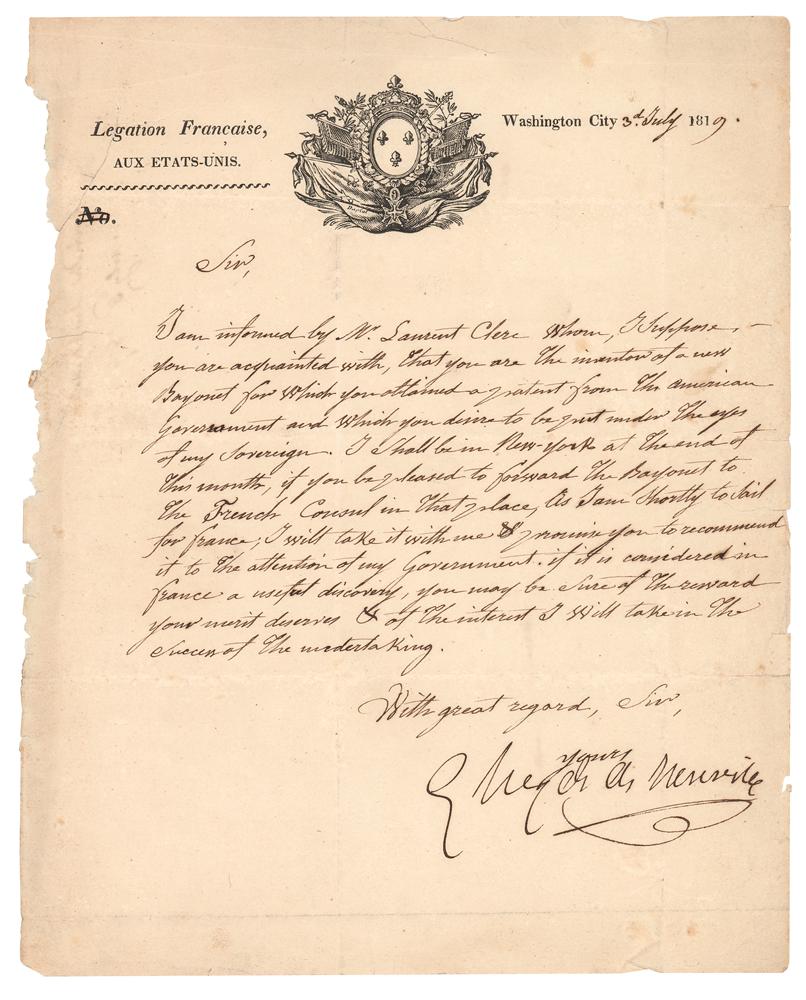 Legation Francaise,
AUX ETATS-UNIS.
Washington City 3d. July 1819.
No.
Sir,
I am informed by Mr. Laurent Clerc Whom, I Suppose,
you are acquainted with, that you are the inventor of a new
Bayonet for Which you obtained a patent from the american
Government and Which you desire to be put under the eyes
of my Sovereign. I Shall be in New-york at the end of
this month, if you be pleased to forward the Bayonet to
the French Consul in that place, As I am Shortly to Sail
for france; I will take it with me & promise you to recommend
it to the attention of my Government. if it is considered in
france a useful discovery, you may be Sure of the reward
your merit deserves & of the interest I Will take in the
Success of the undertaking.
With great regard, Sir,
yours
G Hyde de Neuville